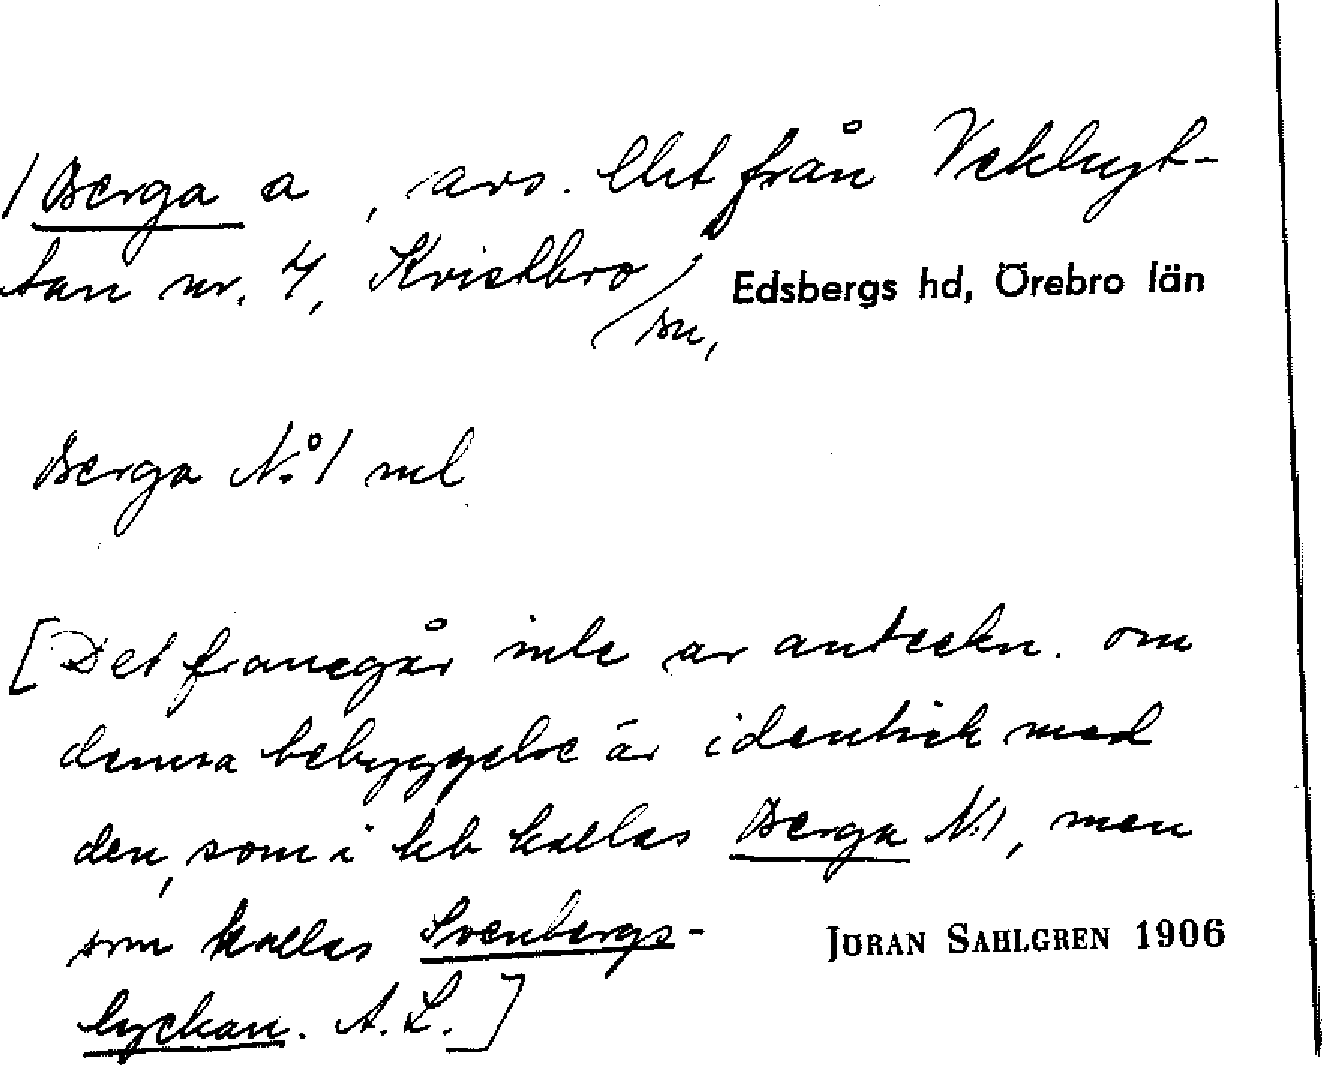 / Berga a, avs. Ebt från Vekhyt-
tan nr. 4, Kvistbro
sn, Edsbergs hd, Örebro län
Berga N:o 1 ml
[Det framgår inte av anteckn. om
denna bebyggelse är identisk med
den, som i kb kallas Berga N:1, men
som kallas Svenbergs-
lyckan. A. L.]
JÖRAN SAHLGREN 1906